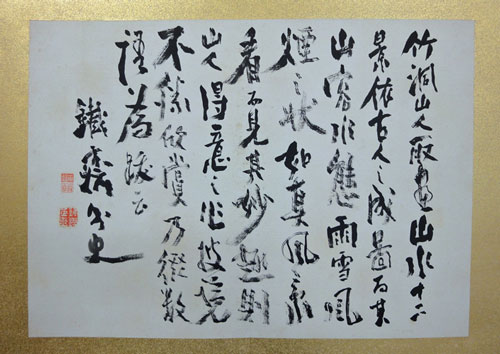 竹洞山人所画山水十六
景依古人之成図而其
山容水態雨雪風
煙之状如真風
看不見其妙趣則
山人得意之作披覧
不勝欣賞乃綴数
語為跋云
鐵齋外史